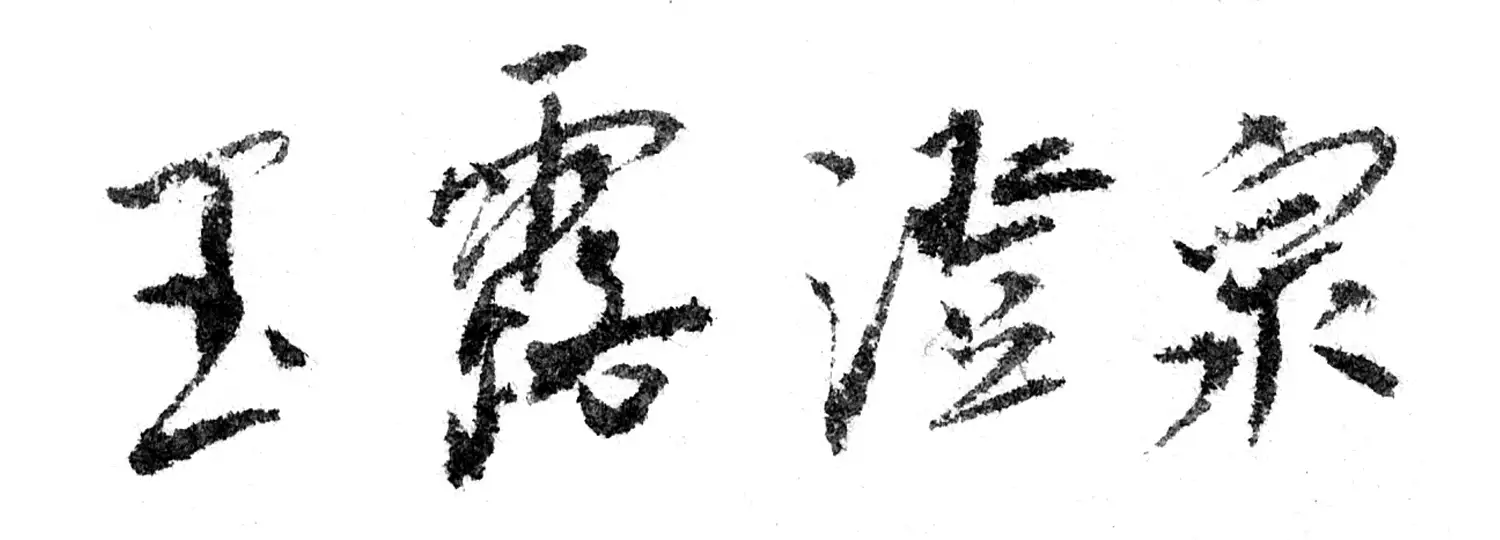 玉露澄泉